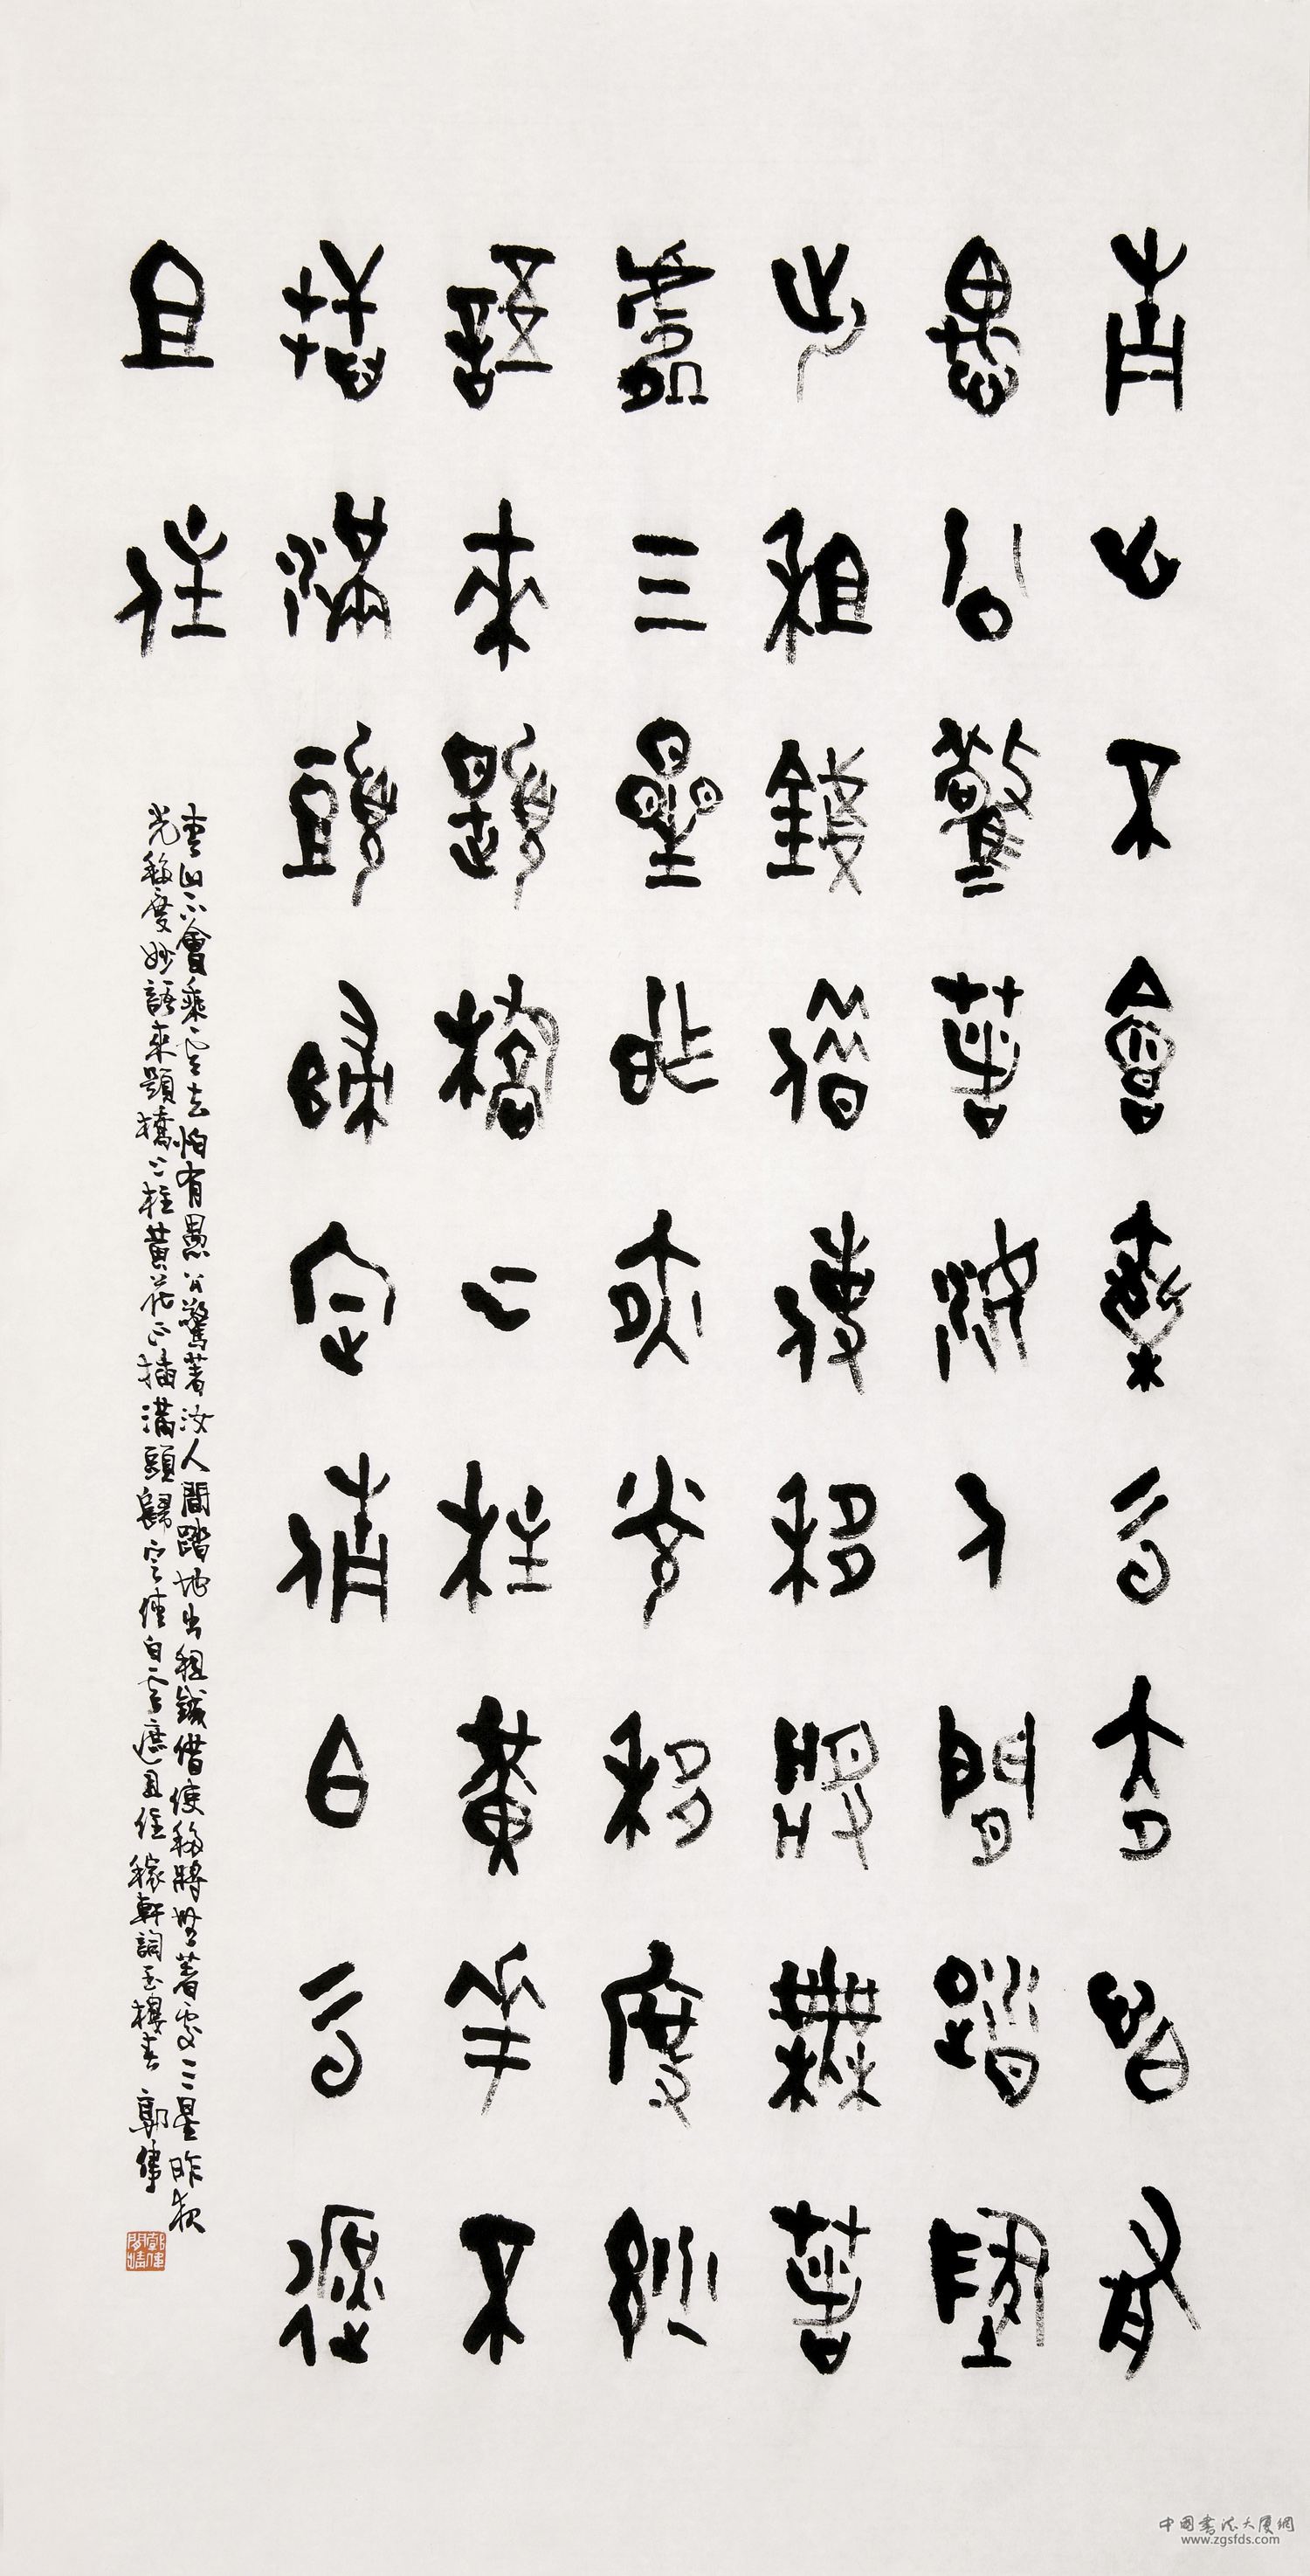 青山不會乘云去怕有
愚公驚著汝人間踏地
出租錢借使移將無著
處三星昨夜光移度妙
語來題橋上柱黃花不
插滿頭歸定倩白云遮
且住
青山不會乘云去怕有愚公驚著汝人間踏地出租錢借使移將無著處三星昨夜
光移度妙語來題橋上柱黃花不插滿頭歸定倩白云遮且住 稼軒詞玉樓春 郭偉
中国書法大廈網
www.zgsfds.com